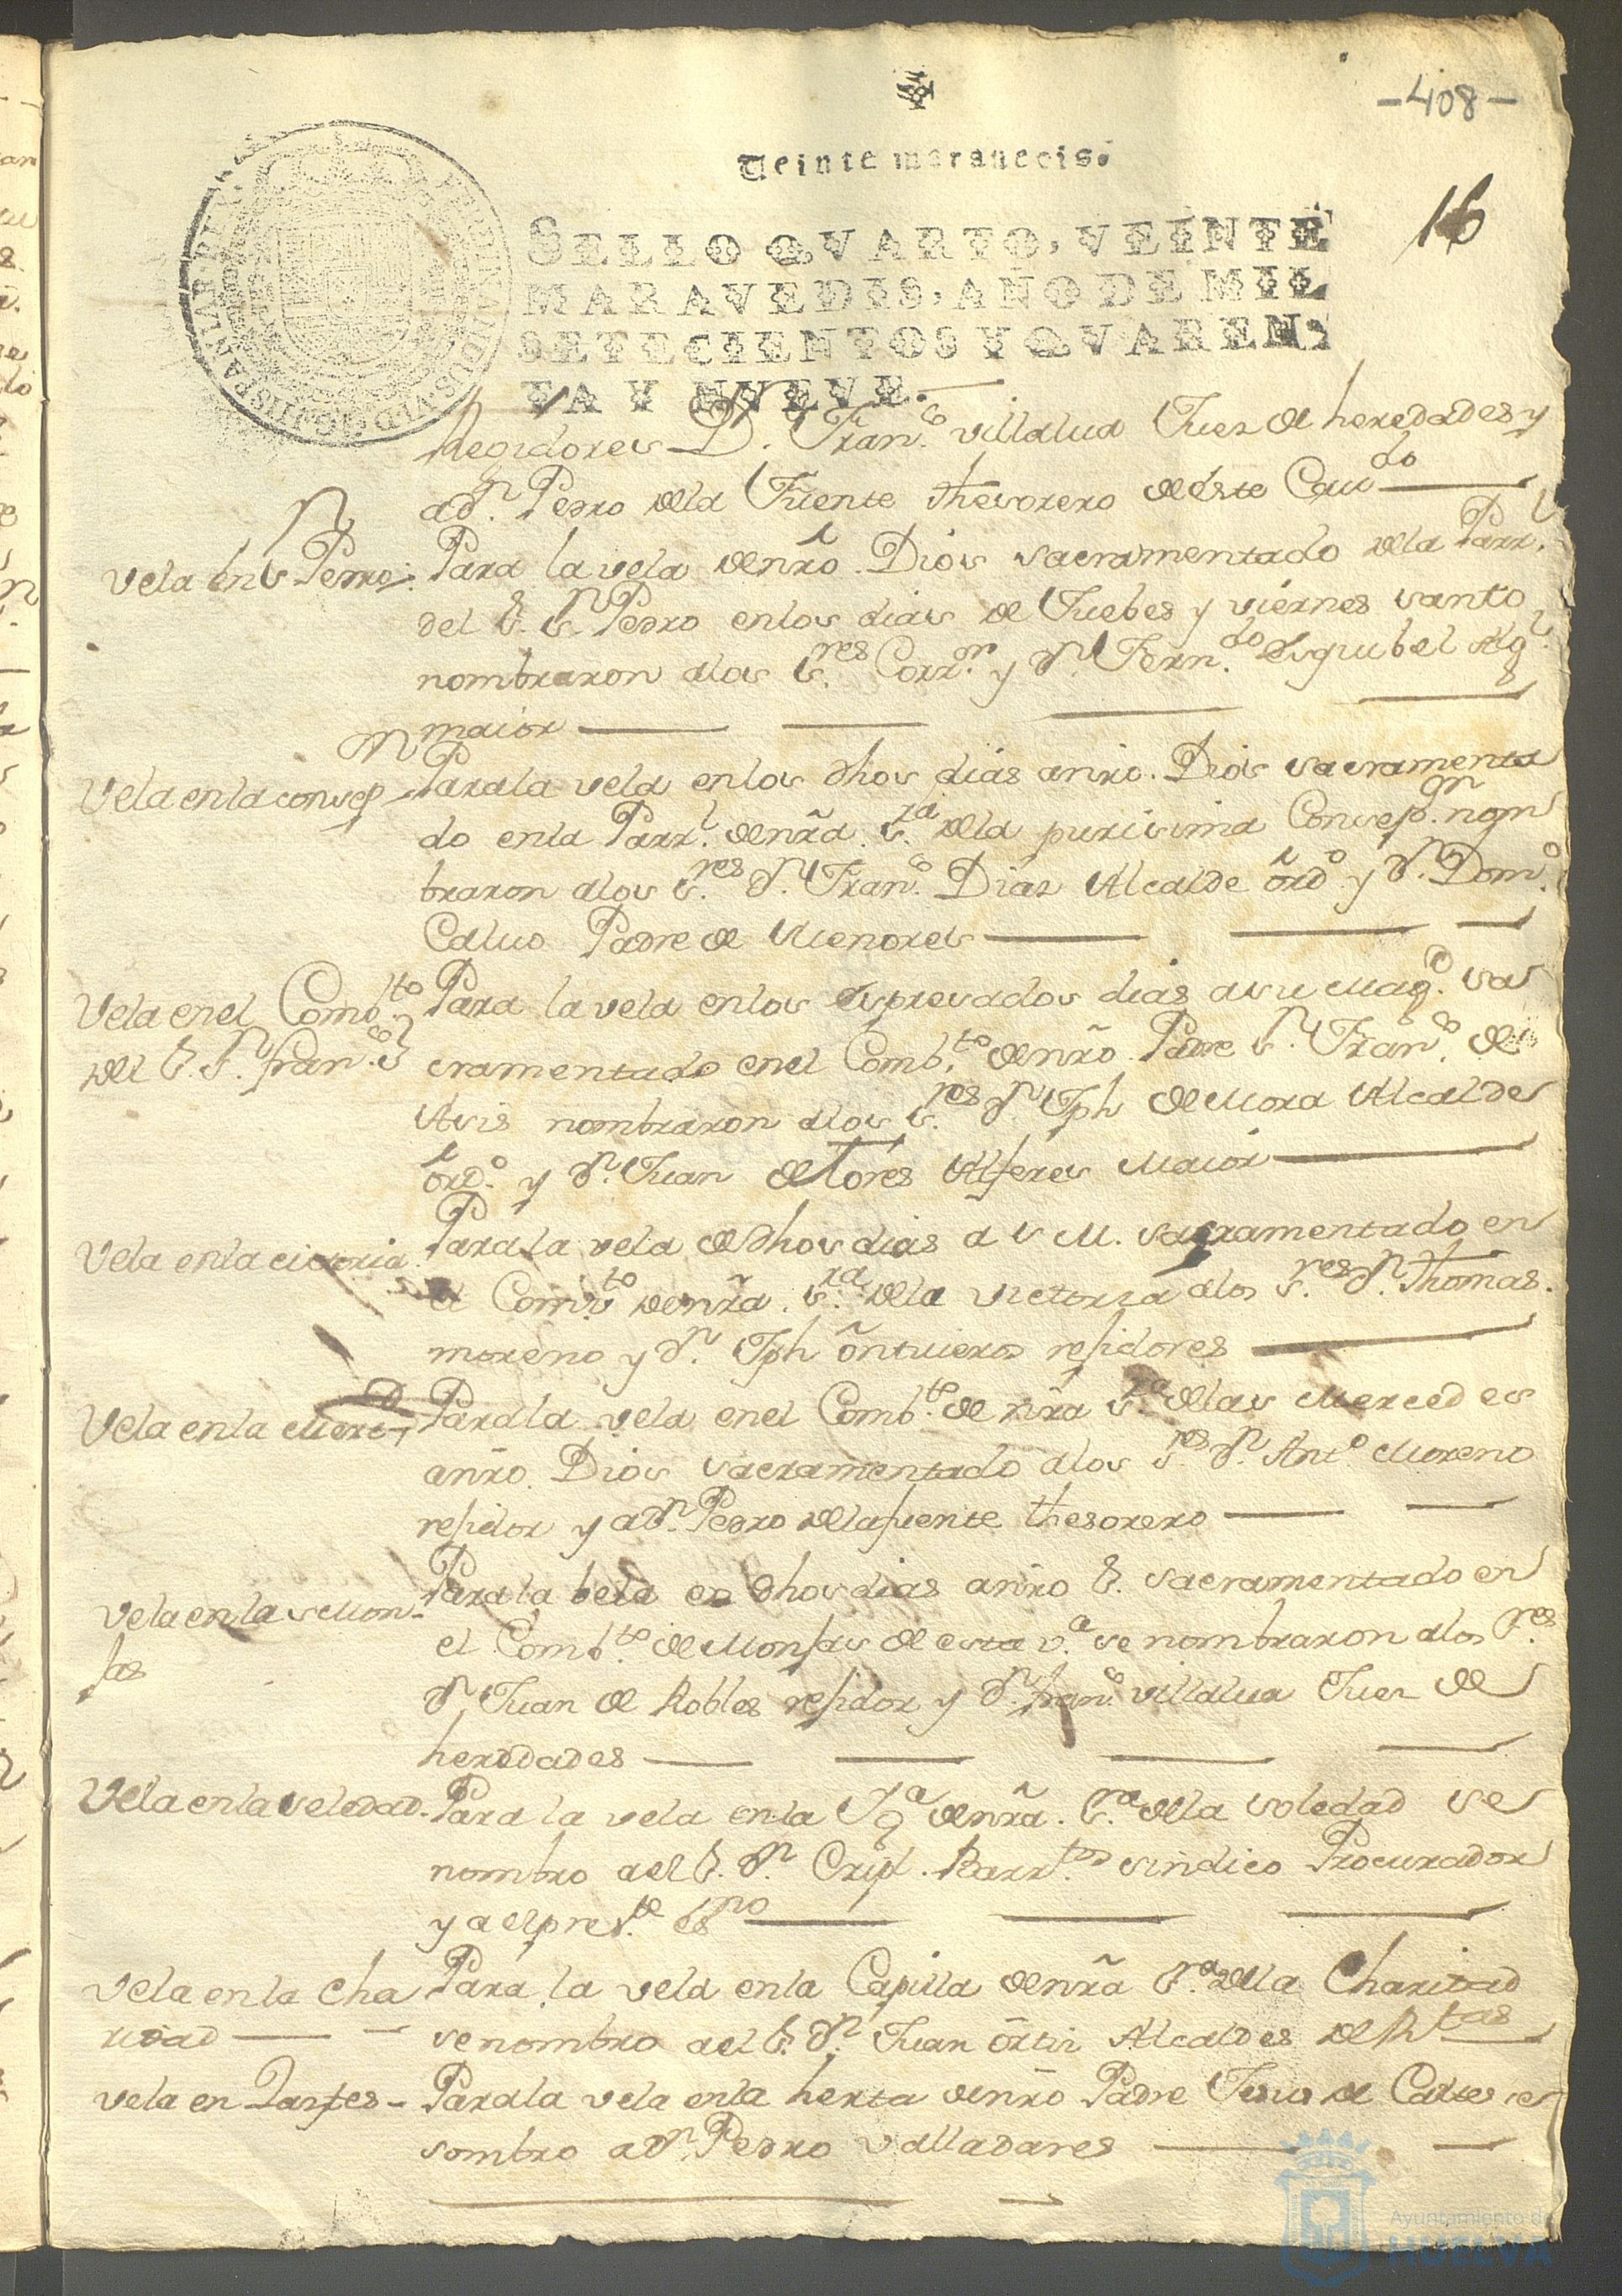 -408-
Veinte maravedis.
16
SELLO QVARTO, VEINTE
MARAVEDIS, AÑO DE MIL
SETECIENTOS Y QVAREN-
TA Y NVEVE.
Regidores D. Fran.co villalua Juez de heredades y
a dn. Pedro dela Fuente thesorero de este Cau.do
Vela en Sn Pedro. Para la vela de nro. Dios sacramentado dela Parr.l
del S. Sn Pedro en los dias de Juebes y viernes santo
nombraron alos S.res Corr.or y dn. Fern.do Esquibel Alg.l
maior
Vela en la consepn Para la vela en los dhos dias a nro. Dios sacramenta
do en la Parr.l de nra. S.ra dela purisima Consepn. nom
braron alos S.res dn. Fran.co Dias Alcalde ord.o y dn. Dom.o
Caluo Padre de Menores
Vela en el Comb.to Para la vela en los espresados dias a su Mag.d sa
del S. Sn. fran.co cramentado en el Comb.to de nro Padre Sn. Fran.co de
Asis nombraron alos S.res dn. Jph de Mora Alcalde
ord.o y dn. Juan de Tores Alferes Maior
Vela en la victoria. Para la vela de dhos dias a S M. sacramentado en
el Comb.to de nra. S.ra dela victoria alos S.res dn. thomas.
moreno y dn. Jph ontiueros residores
Vela en la Merc.d Para la vela en el Comb.to de nra S.ra delas Mercedes
a nro. Dios sacramentado alos S.res dn. Ant.o Moreno
residor y a dn. Pedro dela fuente thesorero
Vela en las Mon- Para la bela en dhos dias a nro S. sacramentado en
jas el Comb.to de Monjas de esta v.a se nombraron alos S.res
dn Juan de Robles residor y dn. fran.co villalua Juez de
heredades
Vela en la soledad. Para la vela en la Yg.a de nra. S.ra dela soledad se
nombro a el S. dn Crisl. Barr.tos sindico Procurador
y a el pres.te Ess.no
Vela en la Cha Para la vela en la Capilla de nra S.ra dela Charidad
ridad se nombro a el S. dn Juan ortis Alcaldes de Rtas
vela en Sanjes - Para la vela en la hermta de nro Padre Jesus de Caltes se
nombro a dn Pedro Valladares
Ayuntamiento de
HUELVA